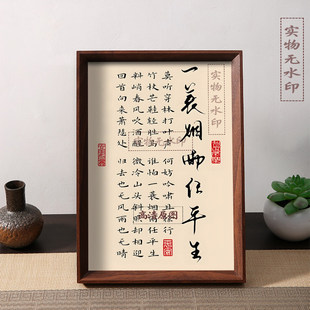 实物无水印
一蓑烟雨任平生
实物无水印
莫听穿林打叶声 何妨吟啸且徐行
竹杖芒鞋轻胜马 谁怕一蓑烟雨任平生
料峭春风吹酒醒 微冷山头斜照却相迎
回首向来萧瑟处 归去也无风雨也无晴
实物无水印
高清原图